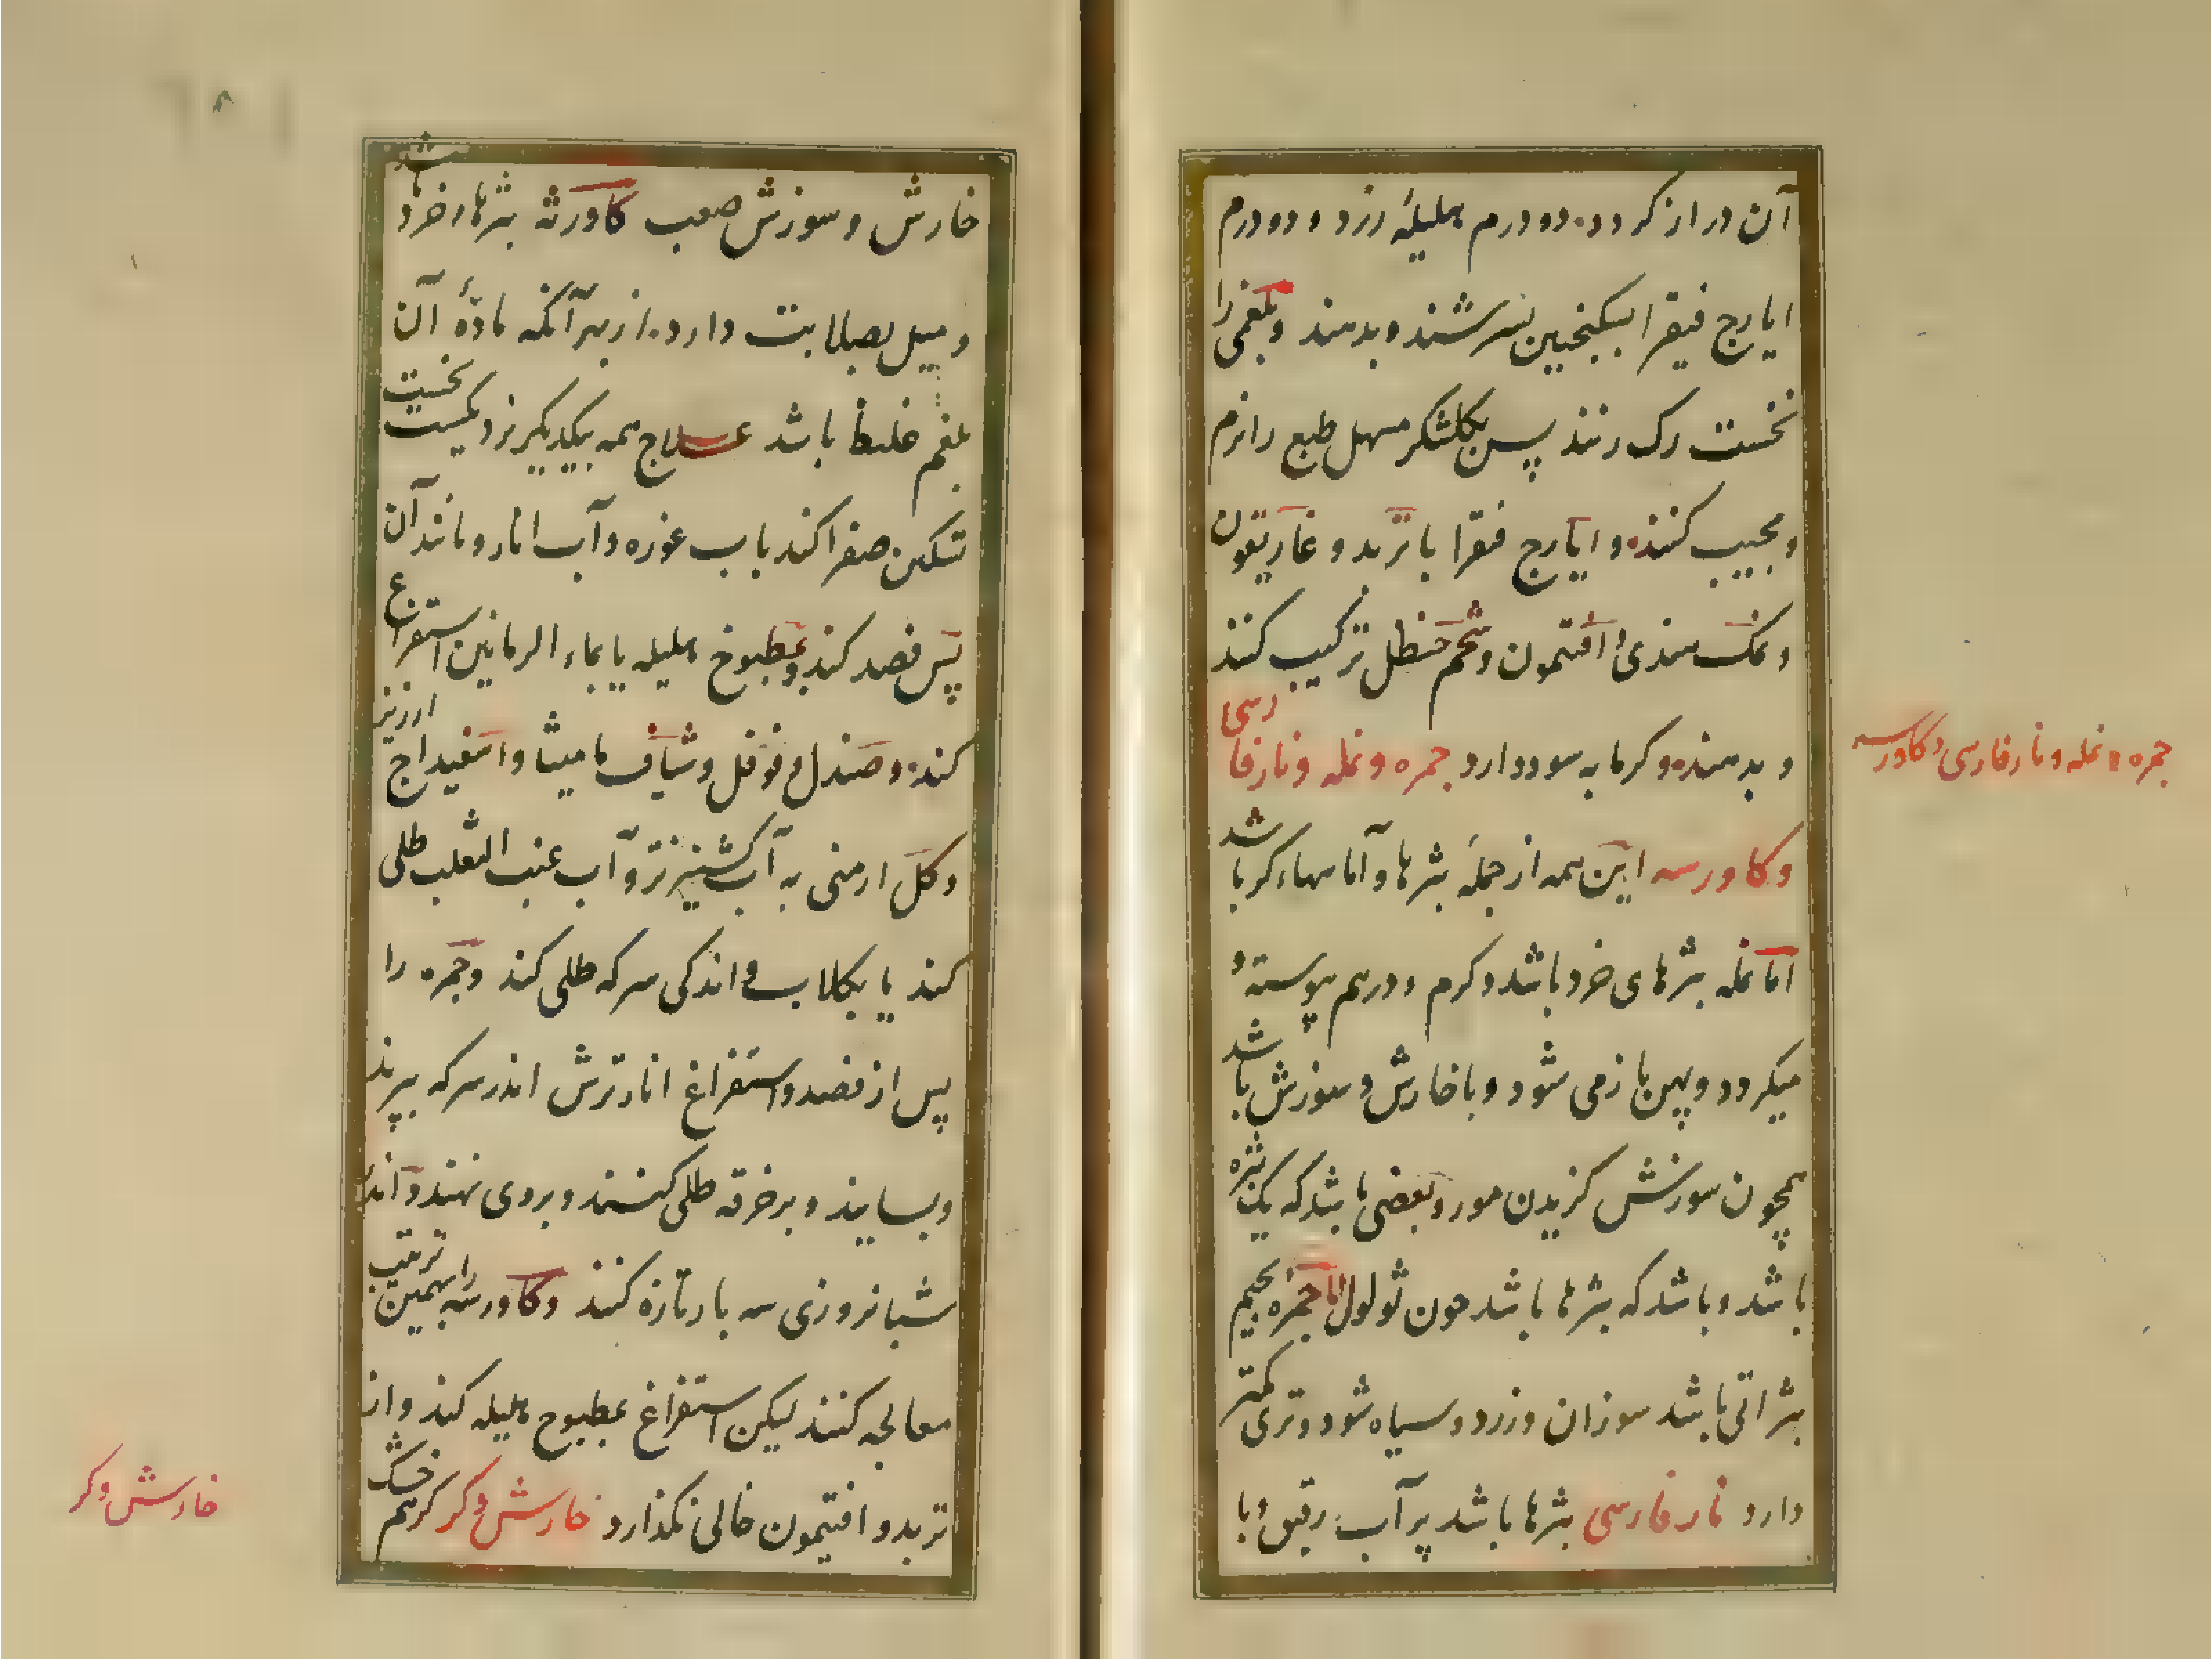 آن دراز کردد. دو درم هلیلهٔ زرد و دو درم
ایارج فیقرا بسکنجبین بسرشند و بدهند و بلغمی را
نخست رک زنند پس بکلشکر مسهل طبع را نرم
و مجیب کنند. و ایارج فقرا با تربد و غاریقون
و نمک هندی و افتیمون و شحم حنظل ترکیب کنند
و بدهند. و کرمابه سود دارد جمره و نمله و نار فارسی
جمره و نمله و نار فارسی و کاورسه
و کاورسه این همه از جملهٔ بثرها و آماسهاء کر باشد
اما نمله بثرهای خرد باشد و کرم و درهم پیوسته و
میکردد و پهن بازمی شود و با خارش و سوزش باشد
همچون سوزش کزیدن مور و بعضی باشد که یک بثره
باشد و باشد که بثرها باشد حون ثولول اما جمره بجیم
بثراتی باشد سوزان و زرد و سیاه شود و تری کمتر
دارد نار فارسی بثرها باشد پر آب رقیق و با
خارش و سوزش صعب کاورثه بثرهاء خرد باشد
و میل بصلابت دارد. از بهر آنکه مادهٔ آن
بلغم غلیظ باشد علاج همه بیکدیکر نزدیکست نخست
تسکین صفرا کند بآب غوره و آب انار و مانند آن
پس فصد کند و بمطبوخ هلیله یا بماء الرمانین استفراغ
کند. و صندل و فوفل و شیاف مامیثا و اسفیداج ارزیز
و کل ارمنی به آب کشنیز تر و آب عنب الثعلب طلی
کند یا بکلاب و اندکی سرکه طلی کند و جمره را
پس از فصد و استفراغ انار ترش اندر سرکه بپزند
و بسایند و بر خرقه طلی کنند و بروی نهند و اندر
شبانروزی سه بار تازه کنند و کاورسه را بهمین ترتیب
معالجه کنند لیکن استفراغ بمطبوح هلیله کند و از
تربد و افتیمون خالی نکذارد خارش و کر کر هم خشک
خارش و کر